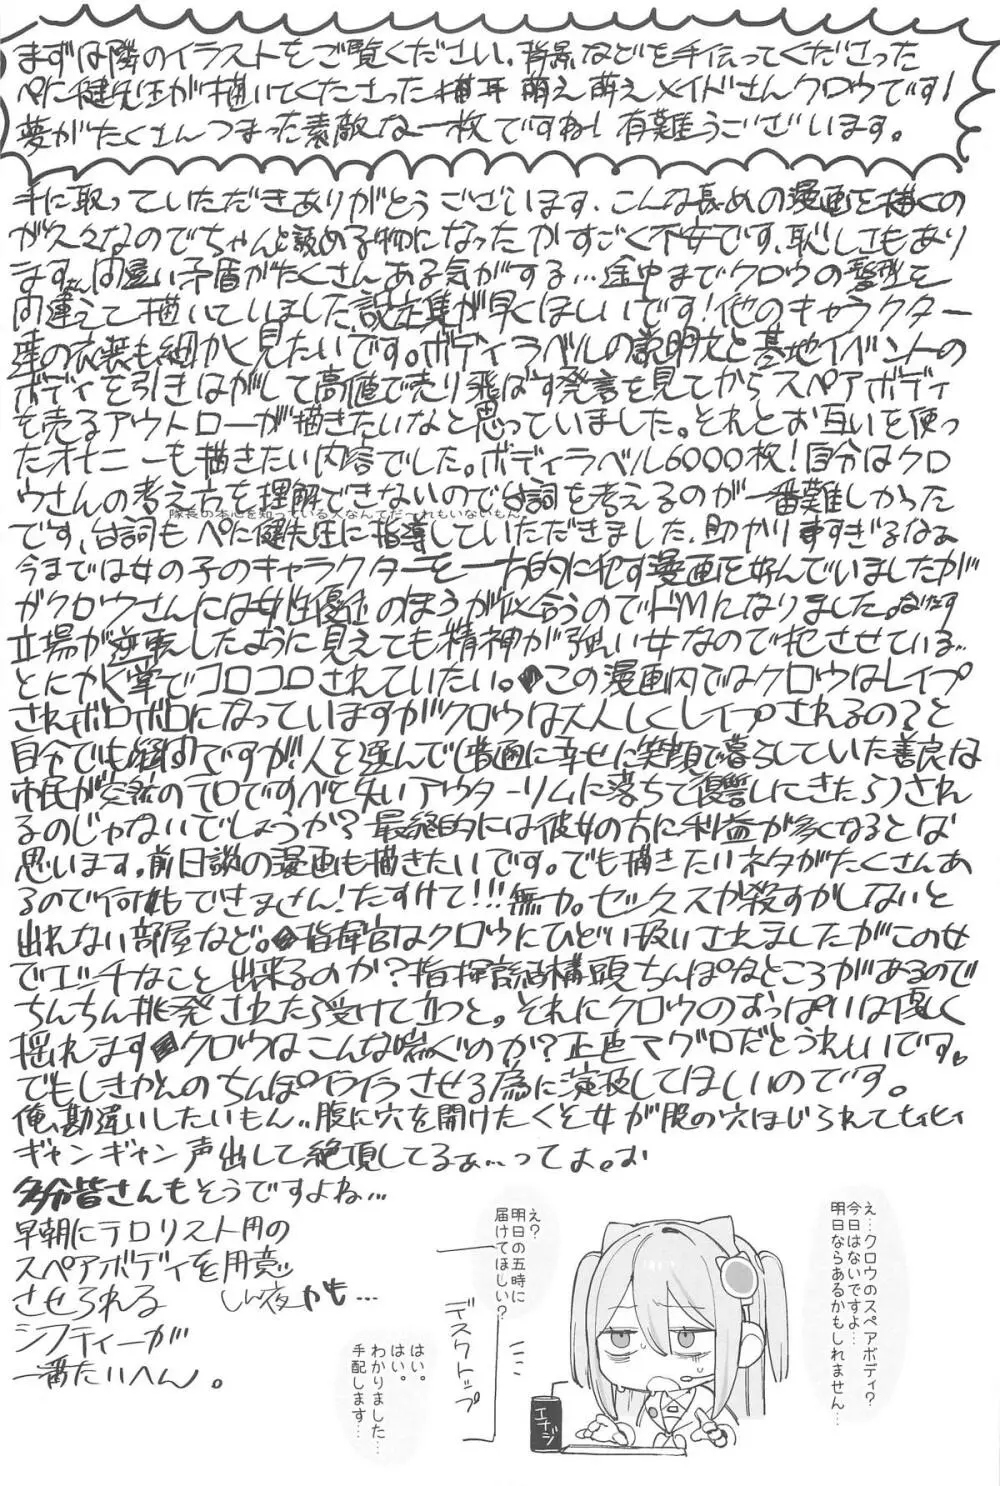 まずは隣のイラストをご覧ください。背景などを手伝ってくださった
ぺに健先生が描いてくださった猫耳萌え萌えメイドさんクロウです!
夢がたくさんつまった素敵な一枚ですね!有難うございます。
手に取っていただきありがとうございます、こんな長めの漫画を描くの
が久々なのでちゃんと読め物になったかすごく不安です、恥しくもあり
ます 間違い矛盾がたくさんある気がする…途中までクロウの髪型を
間違えて描いていました設定集が早くほしいです!他のキャラクター
達の衣装も細かく見たいです。ボディラベルの説明文と基地イベントの
ボディを引きはがして高値で売り飛ばす発言を見てからスペアボディ
を売るアウトローが描きたいなと思っていました。それとお互いを使っ
たオナニーも描きたい内容でした。ボディラベル6000枚!自分はクロ
ウさんの考え方を理解できないので台詞を考えるのが一番難しかった
隊長の本心を知っている人なんてだ〜れもいないもん。
です、台詞もぺに健先生に指導していただきました、助かりますぎるなぁ
今までは女の子のキャラクターを一方的に犯す漫画を好んでいましたが
がクロウさんには女性優位のほうが似合うのでドMになりました。
立場が逆転したように見えても精神が強い女なので犯させている…
とにかく掌でコロコロされていたい。この漫画内ではクロウはレイプ
されボロボロになっていますがクロウは大人しくレイプされるの?と
自分でも疑問ですが!人を選んで(普通に幸せに笑顔で暮らしていた善良な
市民が突然のテロですべて失いアウターリムに落ちて復讐しにきたら)され
るのじゃないでしょうか?最終的には彼女の方に利益が多くなるとは
思います。前日談の漫画も描きたいです。でも描きたいネタがたくさんあ
るので何もできません!たすけて!!!無力。セックスか殺すかしないと
出れない部屋など。指揮官はクロウにひどい扱いされましたがこの女
でエッチなこと出来るのか?指揮官結構頭ちんぽなところがあるので
ちんちん挑発されたら受けて立つと。それにクロウのおっぱいは優しく
揺れます クロウはこんな喘ぐのか?正直マグロだとうれしいです。
でもしきかんのちんぽイライラさせる為に演技してほしいのです。
俺、勘違いしたいもん、腹に穴を開けたくそ女が股の穴ほじられてヒィヒィ
ギャンギャン声出して絶頂してるぁ…ってよ。お
多分皆さんもそうですよね…
早朝にテロリスト用の
スペアボディを用意
させられる しん夜かも…
シフティーが
一番たいへん。
え…クロウのスペアボディ?
今日はないですよ…
明日ならあるかもしれません…
え?
明日の五時に
届けてほしい?
はい。
はい。
わかりました…
手配します…
デスクトップ
エナジ